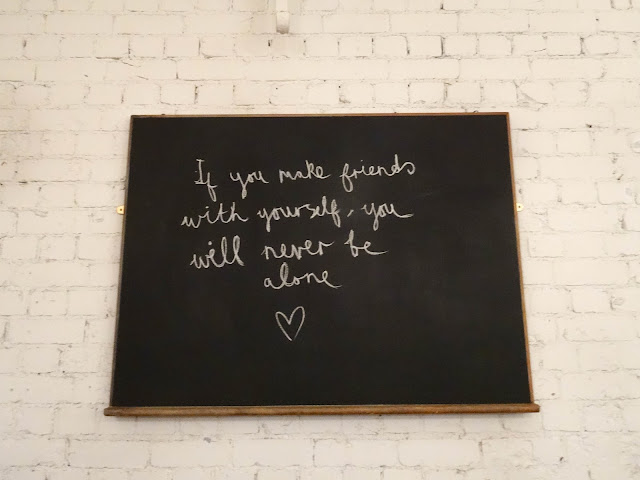 If you make friends
with yourself, you
will never be
alone